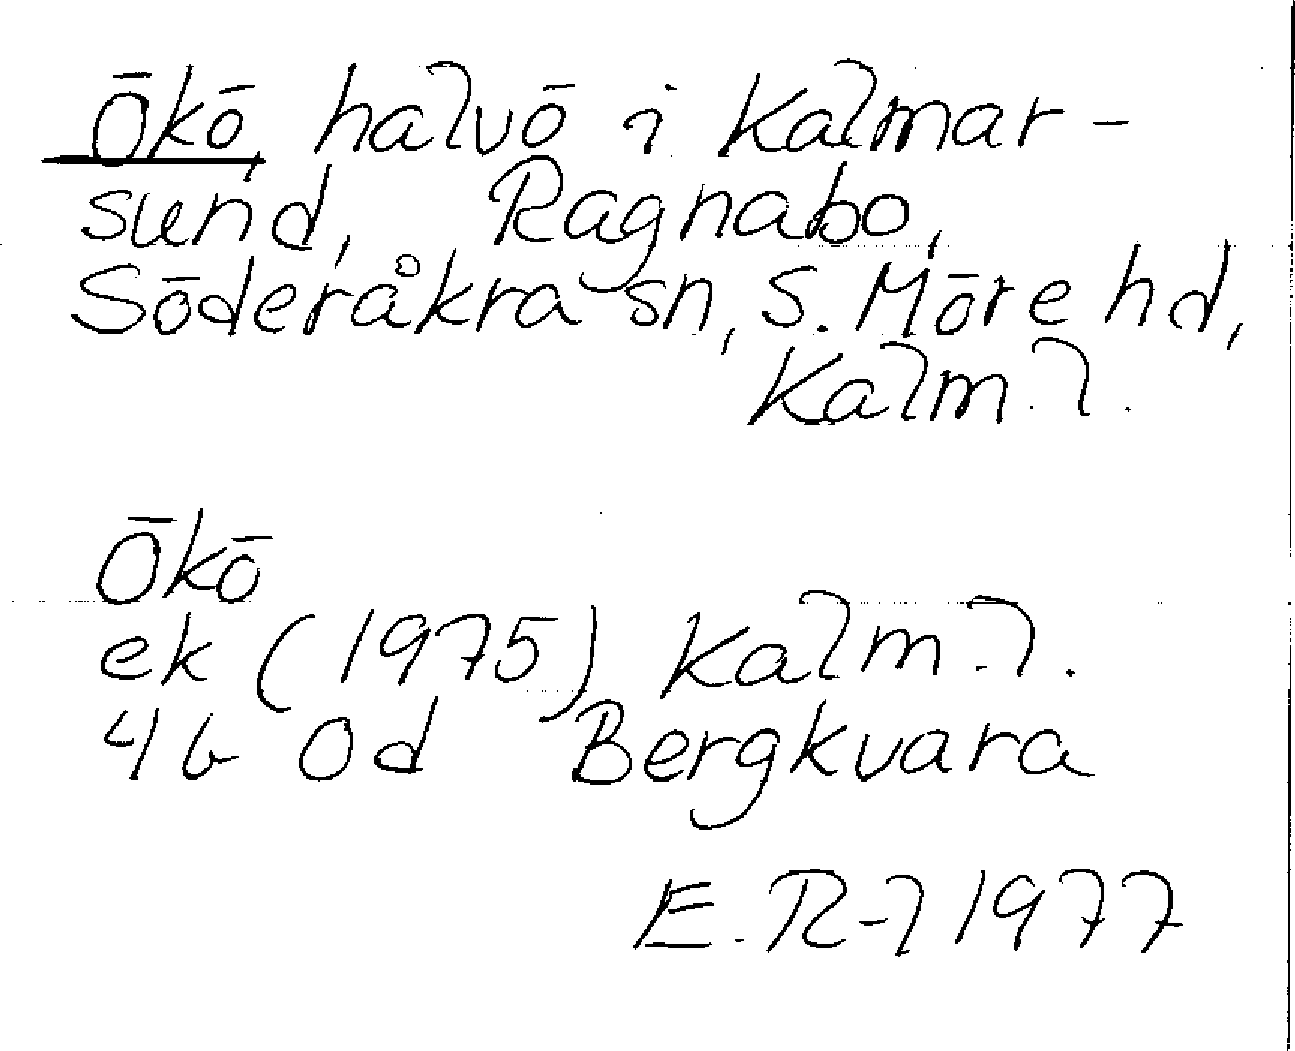 Ökö, halvö i Kalmar-
sund, Ragnabo,
Söderåkra sn, S. Möre hd,
Kalm. l.
Ökö
ek (1975) Kalm. l.
4 G 0d Bergkvara
E. R-l 1977